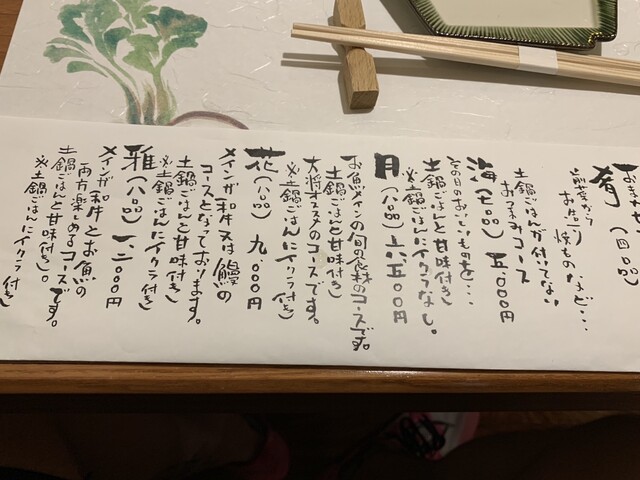 おまかせ
肴(四品)
前菜から
お造り 焼もの など…
土鍋ごはんが付いてない
おつまみコース
海(七品) 五、〇〇〇円
その日のおいしいものを…
土鍋ごはんと甘味付き
※土鍋ごはんにイクラなし。
月(八品) 六、五〇〇円
お魚メインの旬の食材のコースです。
土鍋ごはんと甘味付き
大将オススメのコースです。
※土鍋ごはんにイクラ付き
花(八品) 九、〇〇〇円
メインが和牛又は鰻の
コースとなっております。
土鍋ごはんと甘味付き
※土鍋ごはんにイクラ付き
雅(八品) 一二、〇〇〇円
メインが和牛とお魚の
両方楽しめるコースです。
土鍋ごはんと甘味付き。
※土鍋ごはんにイクラ付き